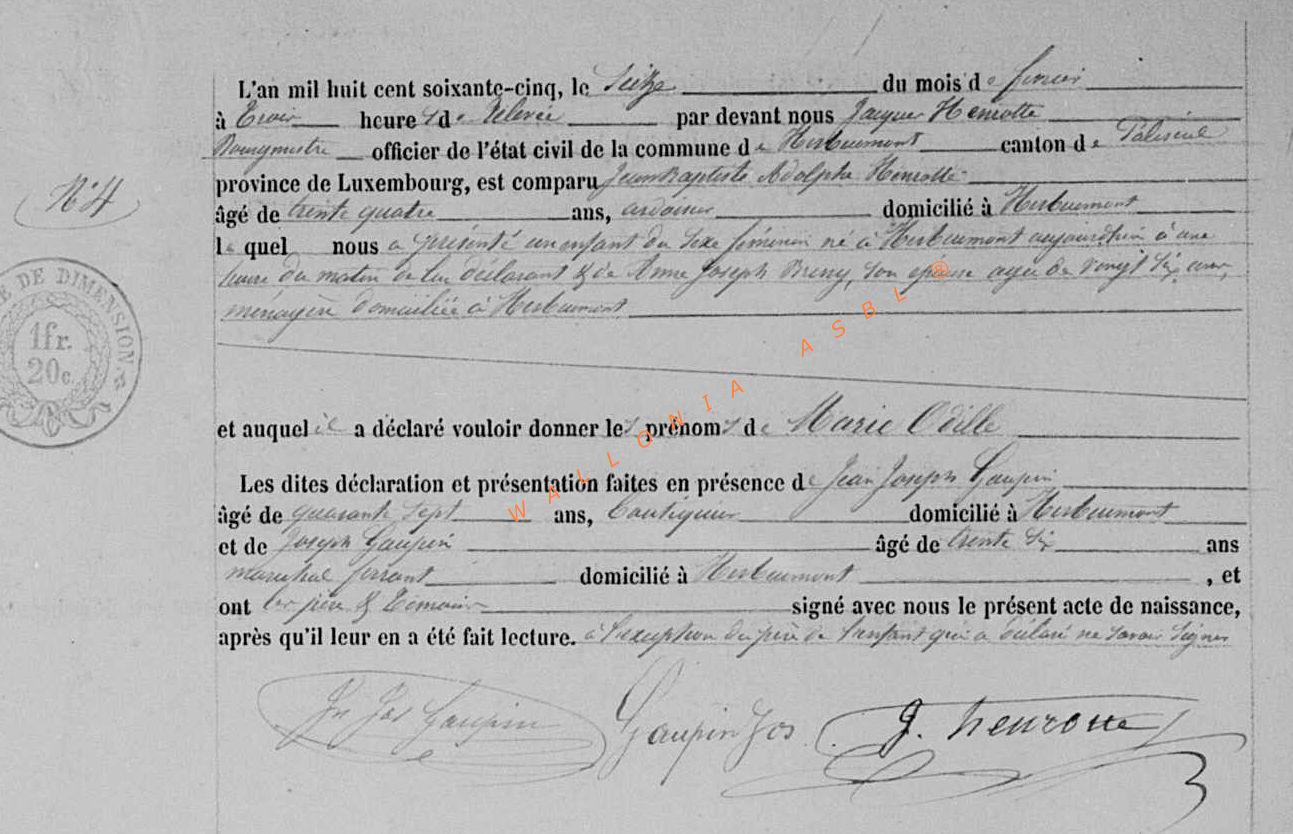 L'an mil huit cent soixante-cinq, le Seize du mois de fevrier
à Trois heures de Relevée par devant nous Jacques Henrotte
Bourgmestre officier de l'état civil de la commune de Herbeumont canton de Paliseul
province de Luxembourg, est comparu Jean Baptiste Adolphe Henrotte
âgé de trente quatre ans, ardoisier domicilié à Herbeumont
le quel nous a présenté un enfant du sexe féminin né à Herbeumont aujourd'hui à une
heure du matin de lui déclarant & de Anne Joseph Breny, son épouse agée de vingt six ans,
ménagère domiciliée à Herbeumont
N° 4
E DE DIMENSION
1fr.
20c.
et auquel il a déclaré vouloir donner les prénoms de Marie Odille
Les dites déclaration et présentation faites en présence de Jean Joseph Gaupin
âgé de quarante sept ans, domicilié à Herbeumont
et de Joseph Gaupin âgé de trente six ans
maréchal ferrant domicilié à Herbeumont, et
ont les père & témoins signé avec nous le présent acte de naissance,
après qu'il leur en a été fait lecture. à l'exception du père de l'enfant qui a déclaré ne savoir signer
Jn Jos Gaupin Gaupin Jos J. henrotte
WALLONIA ASBL ®